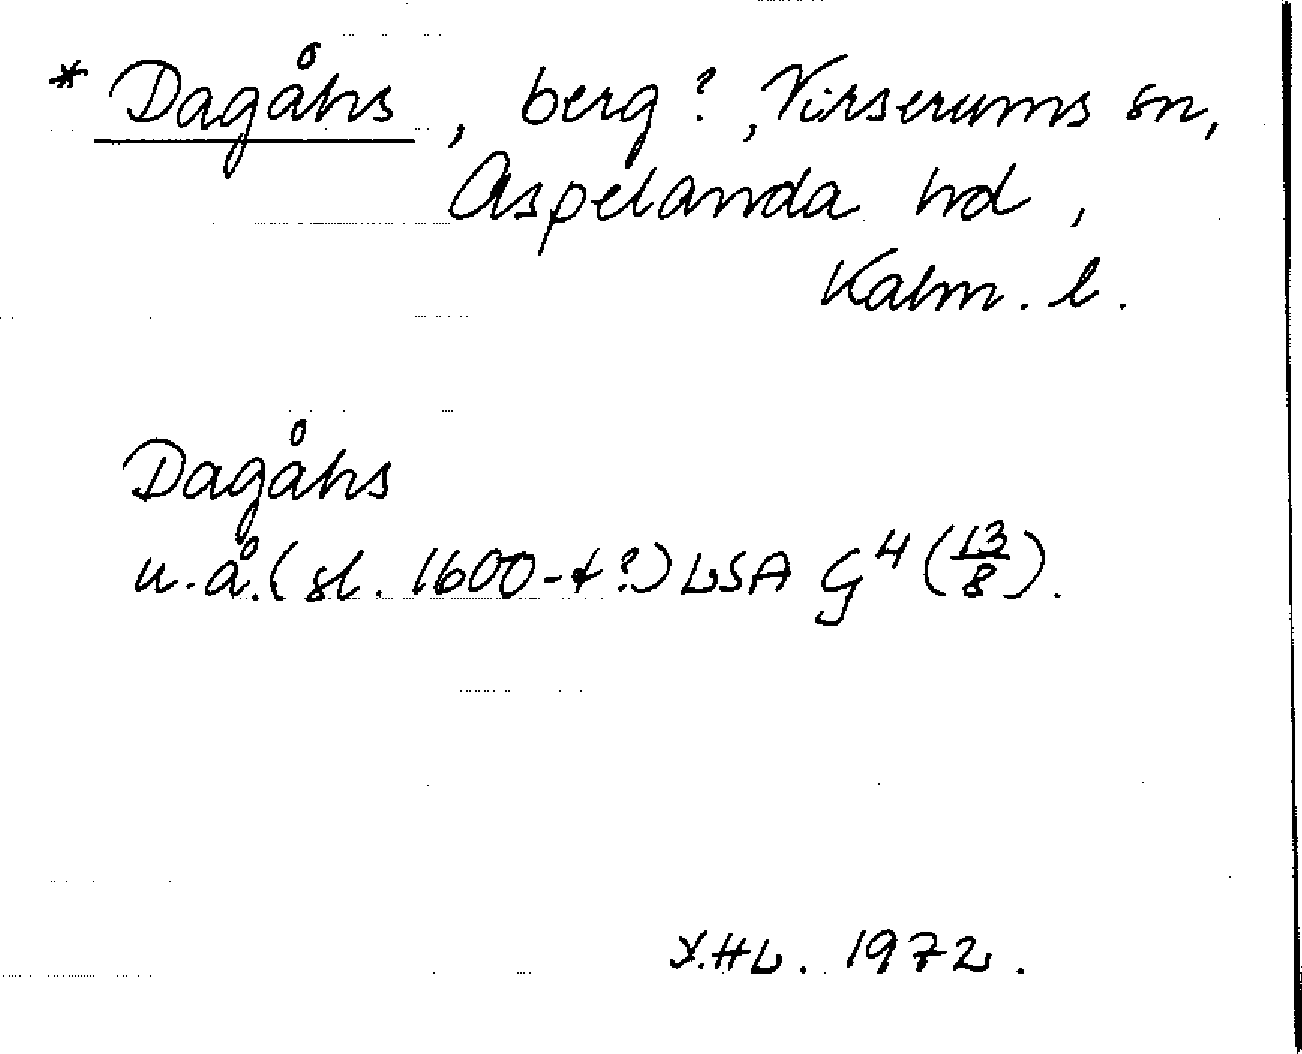 * Dagåhs, berg?, Virserums sn,
Aspelanda hd,
Kalm. l.
Dagåhs
u.å. (sl. 1600-t?) LSA G⁴ (13/8).
Y.HL. 1972.